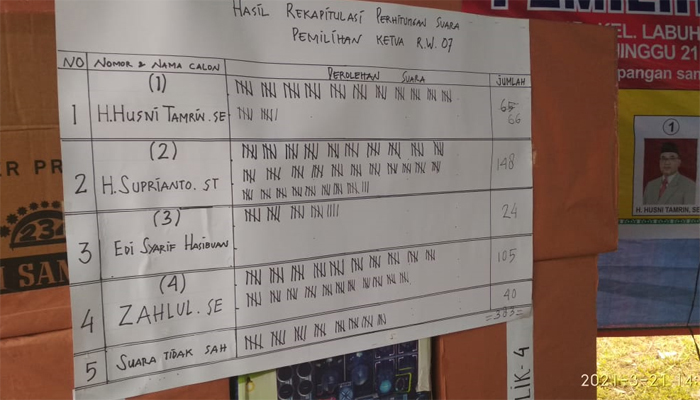 HASIL REKAPITULASI PERHITUNGAN SUARA
PEMILIHAN KETUA R.W. 07
NO NOMOR & NAMA CALON PEROLEHAN SUARA JUMLAH
(1)
1 H.HUSNI TAMRIN.SE 65 66
(2)
2 H.SUPRIANTO.ST 148
(3)
3 EDI SYARIF HASIBUAN 24
(4)
4 ZAHLUL.SE 105
5 SUARA TIDAK SAH 40
=383=
LIK-4
KEL. LABUH
NGGU 21
pangan sa
1
H. HUSNI TAMRIN, SE
ER PR
234
SAM
2021-3-21 14